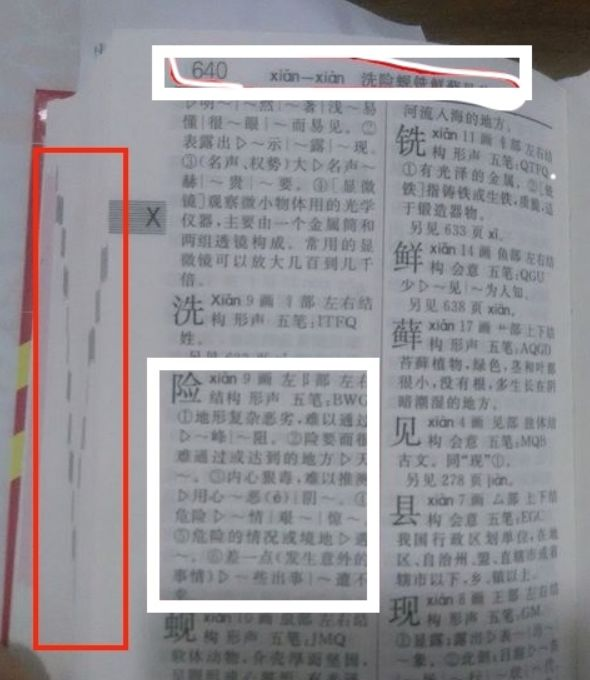 640 xiǎn—xiàn 洗险蚬铣鲜藓见县
▷明~|~然|~著|浅~易
懂|很~眼|~而易见。②
表露出▷~示|~露|~现。
③(名声、权势)大▷名声~
赫|~贵|~要。④[显微
镜]观察微小物体用的光学
仪器,主要由一个金属筒和
两组透镜构成。常用的显
微镜可以放大几百到几千
倍。
X
洗 Xiǎn 9 画 氵部 左右结
构 形声 五笔:ITFQ
姓。
险 xiǎn 9 画 左阝部 左右
结构 形声 五笔:BWG
①地形复杂恶劣,难以通过
▷~峰|~阻。②险要而很
难通过或达到的地方▷天
~。③内心狠毒,难以推测
▷用心~恶(è)|阴~。④
危险▷~情|艰~|惊~
⑤危险的情况或境地▷遇
~。⑥差一点(发生意外的
事情)▷~些出事|~遭不
蚬 xiǎn 10 画 虫部 左右结
构 形声 五笔:JMQ
软体动物,介壳厚而坚固,
河流入海的地方。
铣 xiǎn 11 画 钅部 左右结
构 形声 五笔:QTFQ
①有光泽的金属。②[
铁]指铸铁或生铁,质脆,适
于锻造器物。
另见 633 页 xǐ。
鲜 xiǎn 14 画 鱼部 左右结
构 会意 五笔:QGU
少▷~见|~为人知。
另见 638 页 xiān。
藓 xiǎn 17 画 艹部 上下结
构 形声 五笔:AQGD
苔藓植物,绿色,茎和叶都
很小,没有根,多生长在阴
暗潮湿的地方。
见 xiàn 4 画 见部 独体结
构 会意 五笔:MQB
古文。同“现”①。
另见 278 页 jiàn。
县 xiàn 7 画 厶部 上下结
构 会意 五笔:EGC
我国行政区划单位,在地
区、自治州、盟、直辖市或省
辖市以下,乡、镇以上。
现 xiàn 8 画 王部 左右结
构 形声 五笔:GM
①显露;露出▷表~|出~
~象。②此刻;目前▷~